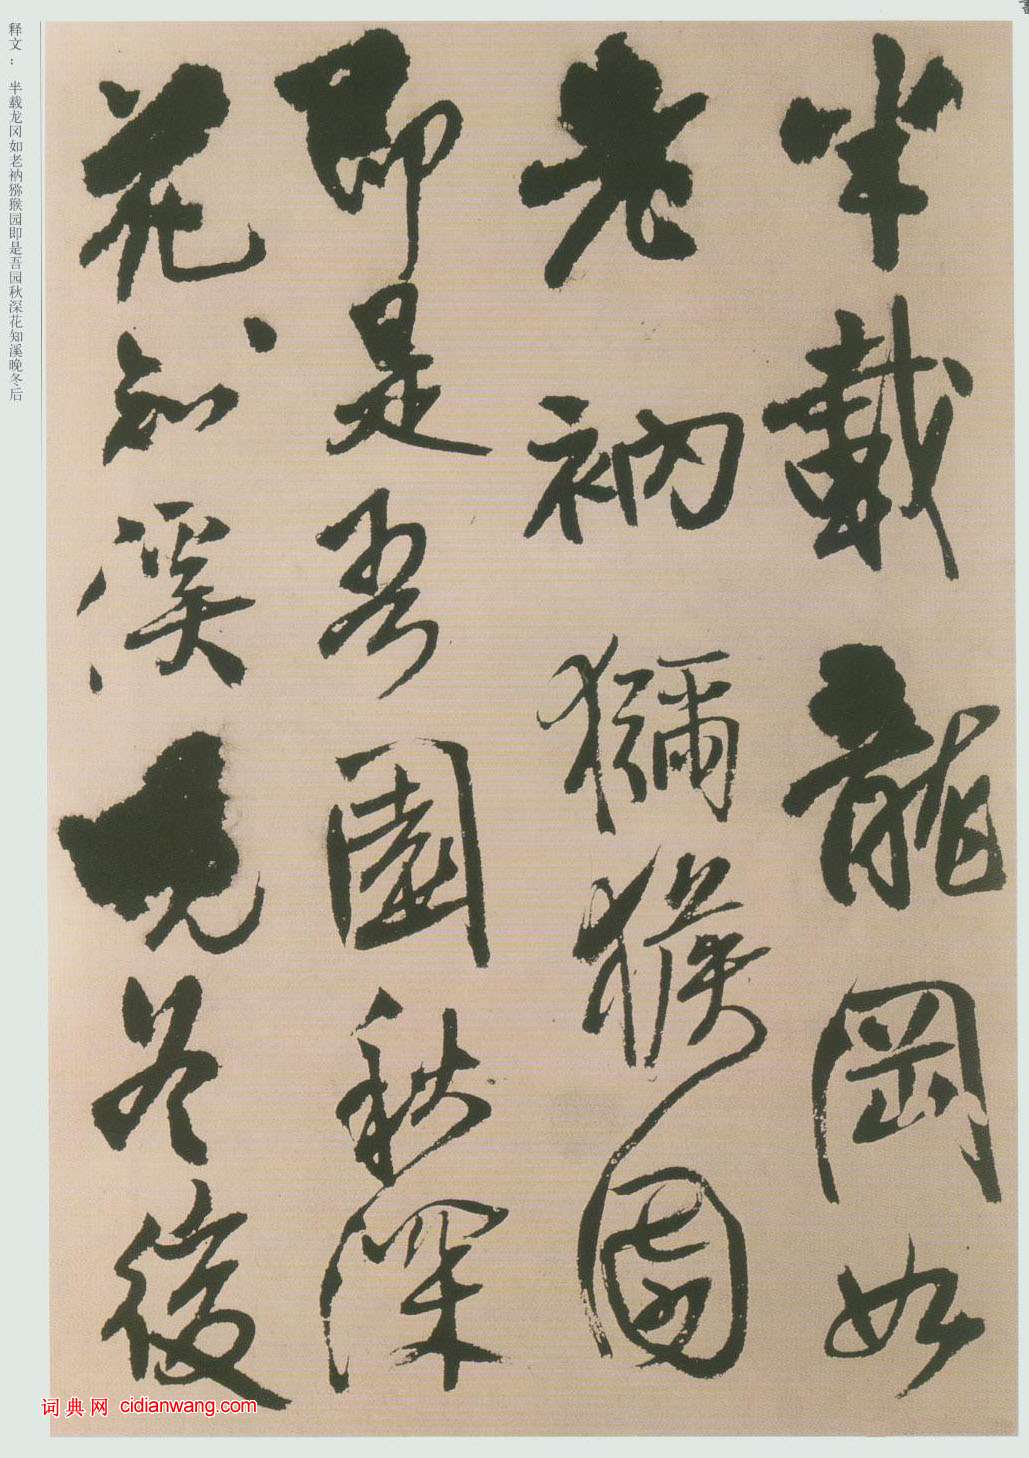 半載龍岡如
老衲獼猴園
即是吾園秋深
花知溪晚冬後
释文：半载龙冈如老衲猕猴园即是吾园秋深花知溪晚冬后
词典网 cidianwang.com